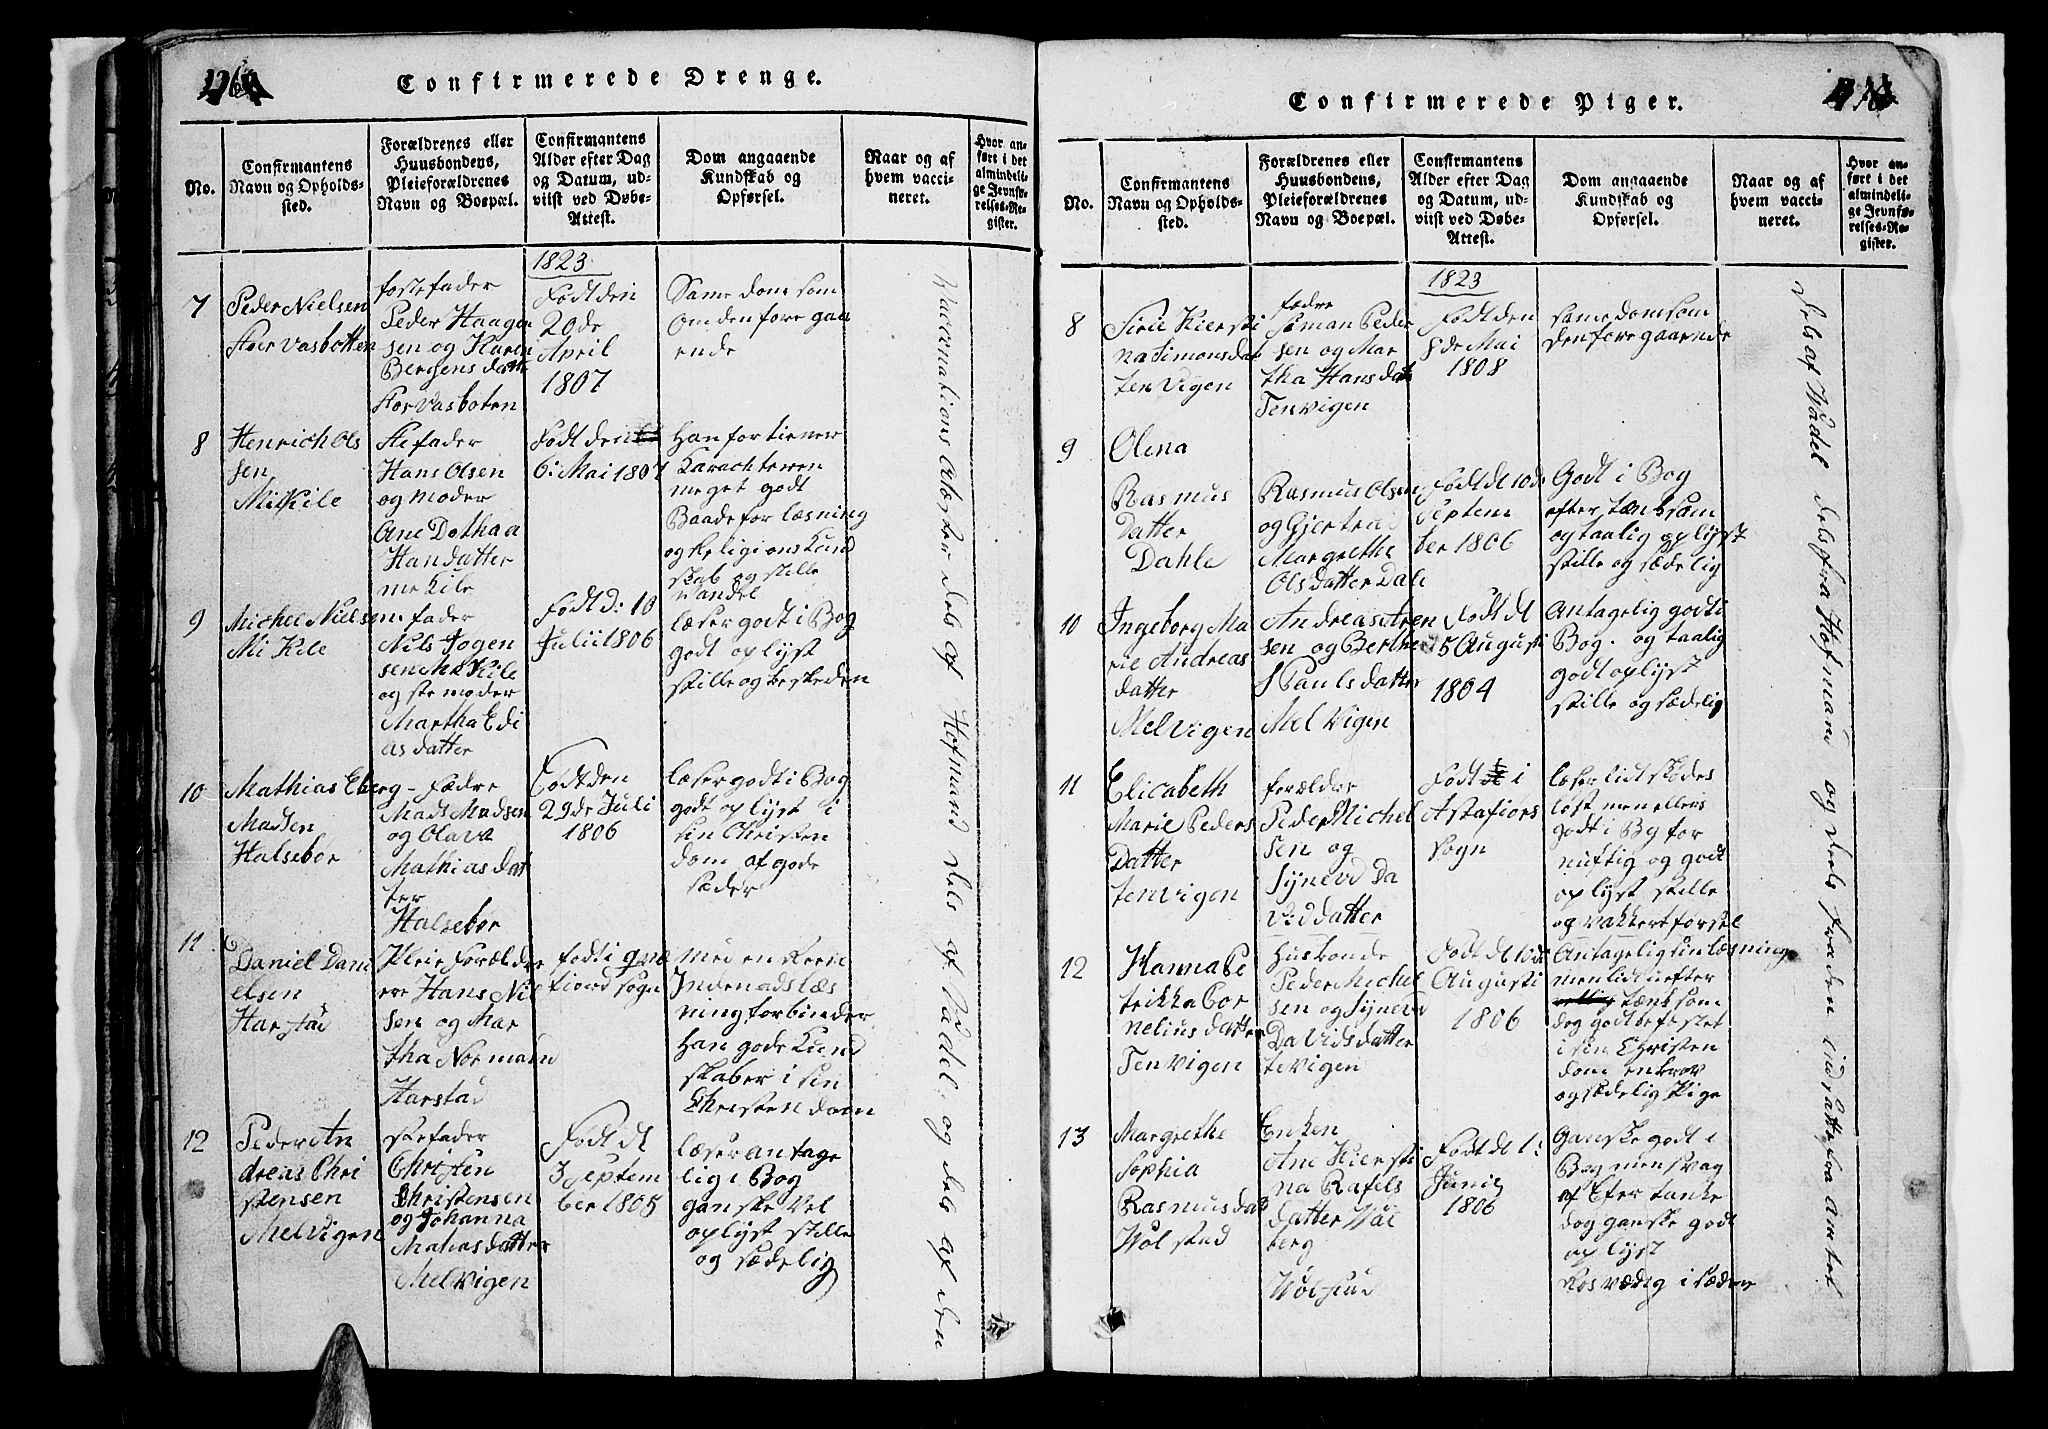 Confirmerede Drenge.
No.
Confirmantens
Navn og Opholds-
sted.
Forældrenes eller
Huusbondens,
Pleieforældrenes
Navn og Boepæl.
Confirmantens
Alder efter Dag
og Datum, ud-
viist ved Døbe-
Attest.
Dom angaaende
Kundskab og
Opførsel.
Naar og af
hvem vacci-
neret.
Hvor an-
ført i det
almindeli-
ge Jevnfø-
relses-Re-
gister.
1823
7
Peder Nielsen
Stoer Vasbotten
fostefader
Peder Haagen
sen og Karen
Bergens datte
Stor Vasboten
Födt den
20de
April
1807
Same dom som
om den fore gaa
ende
8
Henrich Ols
sen
Mikkile
Stefader
Hans Olsen
og moder
Ane Dothaa
Handatter
me Kile
Födt den
6: Mai 1807
han fortiener
Carachteren
meget godt
Baade for læsning
og Religions Kund
skab og stille
Vandel
9
Michel Nielsen
Mi Kile
fader
Nils Jogen
sen Me Kile
og ste moder
Martha Edi
as datter
Födt d: 10
Julii 1806
læser godt i Bog
godt oplyst
stille og beskeden
10
Mathias Eberg
Madsen
Halsebor
Fædre
Mads Madsen
og Olava
Mathias dat
ter
Halsebor
Födt den
29de Juli
1806
læser godt i Bog
godt oplyst i
sin Christen
dom af gode
sæder
11
Daniel Dani
elsen
Harstad
Pleie Forældre
ere Hans Nil
sen og Mar
tha Normann
Harstad
födt i Qve
fiord sogn
med en Reen
Indenads læs
ning forbinder
han gode Kund
skaber i sin
Christendom
12
Peder An
dreas Chri
stensen
Melvigen
stefader
Christen
Christensen
og Johanna
Matias datter
Melvigen
Födt dt
3 Septem
ber 1805
læser antage
lig i Bog
ganske vel
oplyst stille
og sædelig
Vaccinations Atæster dels af Hofmand dels af Wadel og dels af den
Confirmerede Piger.
No.
Confirmantens
Navn og Opholds-
sted.
Forældrenes eller
Huusbondens,
Pleieforældrenes
Navn og Boepæl.
Confirmantens
Alder efter Dag
og Datum, ud-
viist ved Døbe-
Attest.
Dom angaaende
Kundskab og
Opførsel.
Naar og af
hvem vacci-
neret.
Hvor an-
ført i det
almindeli-
ge Jevnfø-
relses-Re-
gister.
1823
8
Sirie Kiersti
na Simons dat
ter Vigen
fædre
Siman Peder
sen og Mar
tha Hans dat
Tenvigen
Födt den
8de Mai
1808
same dom som
den foregaaende
9
Olena
Rasmus
Datter
Dahle
Rasmus Olsen
og Gjertru
Margrethe
Olsdatter Dale
Födt dt 10de
Septem
ber 1806
Godt i Bog
eftertænksam
og taalig oplyst
stille og sædelig
10
Ingeborg Ma
rie Andreas
datter
Melvigen
Andreas Aren
sen og Berthe
Pauls datter
Mel Vigen
Födt dt
5 Augusti
1804
Antagelig godt i
Bog. og taalig
godt oplyst
stille og sædelig
11
Elicabeth
Marie Peders
Datter
tenvigen
forældre
Peder Michel
sen og
Synevd Da
vid datter
Födt i
Astafiors
sogn
læser lidt skiödes
löst men ellers
godt i Bog for
nuftig og godt
oplyst stille
og vakkert forsel
12
Hanna Pe
trikka Cor
nelius datter
Tenvigen
Husbonde
Peder Michel
sen og Synevd
Davids datter
tevigen
Födt dt 10de
Augusti
1806
Antagelig sin læsning
men lidt uefter
tænksom
dog godt befæstet
i sin Christen
dom en brav
og sædelig Pige
13
Margrethe
Sophia
Rasmus dat
Wolstad
Enken
Ane Kiersti
na Rafels
datter Wal
berg
Födt dt 1:
Junii
1806
Ganske godt i
Bog men svag
af Efertanke
dog ganske godt
oplyst
Rosværdig i sæder
dels af Wadel dels fra Hofmand og dels fra den indsatte fra amtet